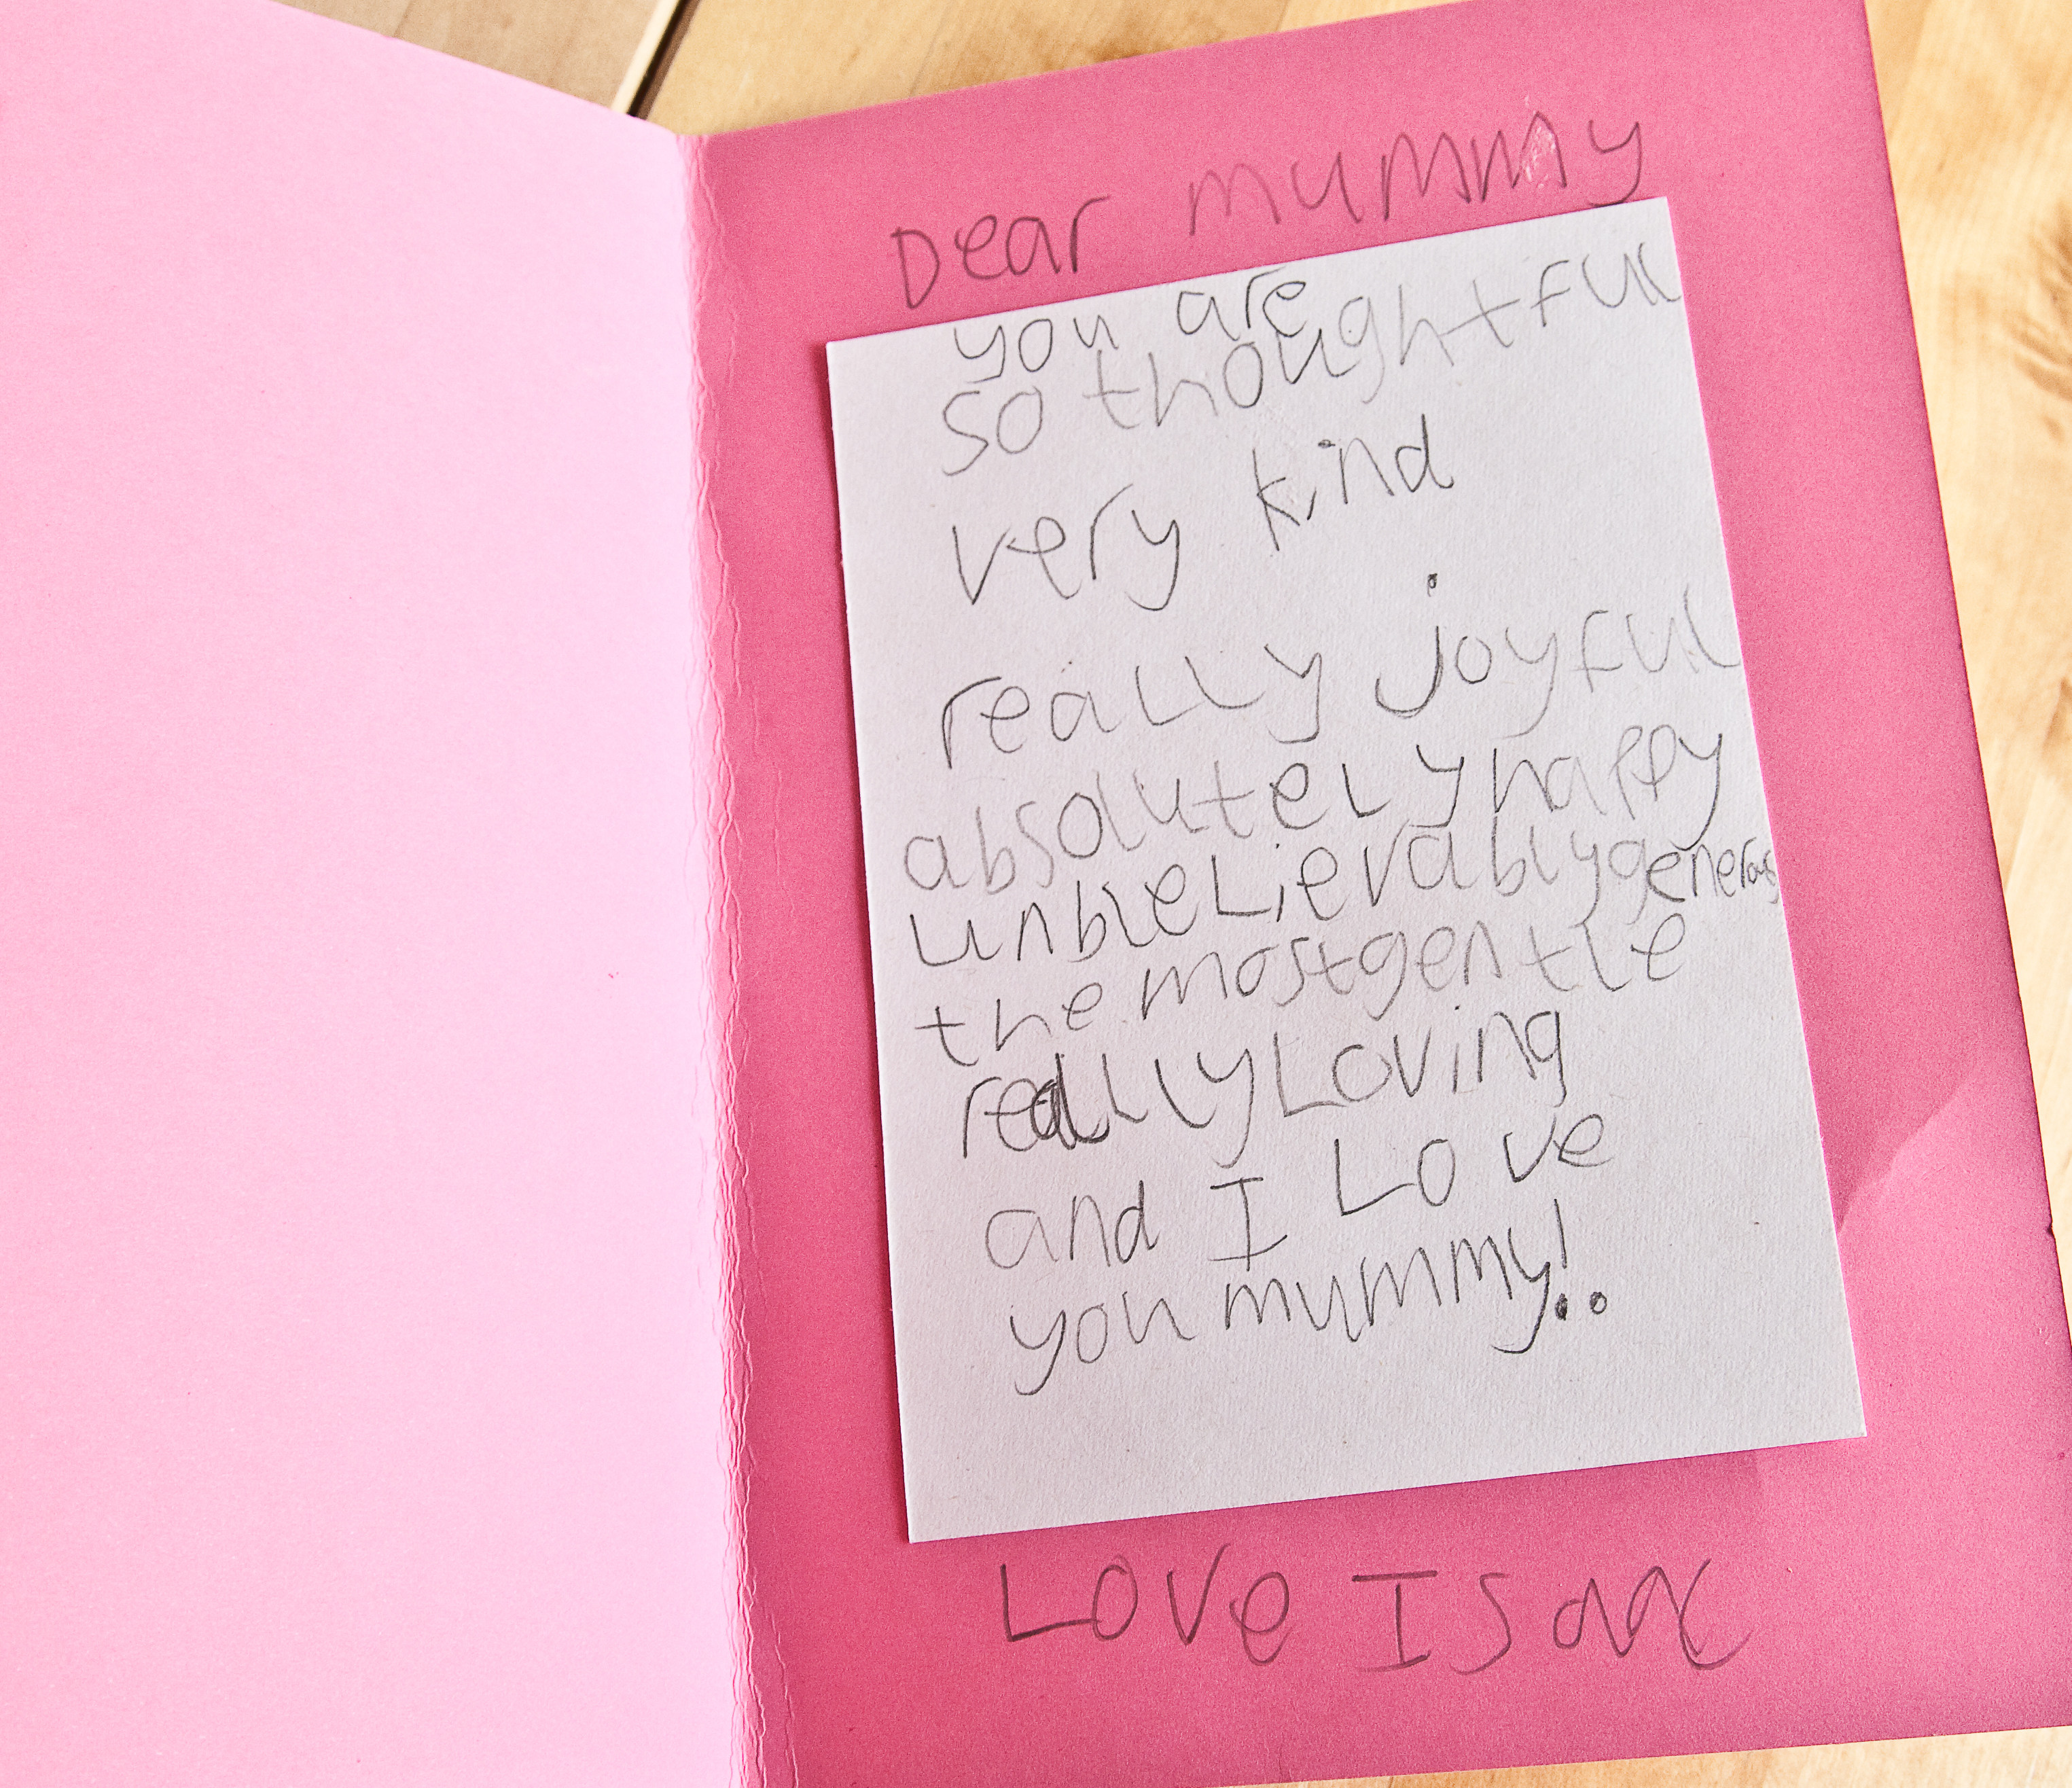 Dear mummy
you are
so thoughtful
very kind
really joyful
absolutely happy
unbelievably generous
the most gentle
really Loving
and I Love
you mummy!..
Love Isaac